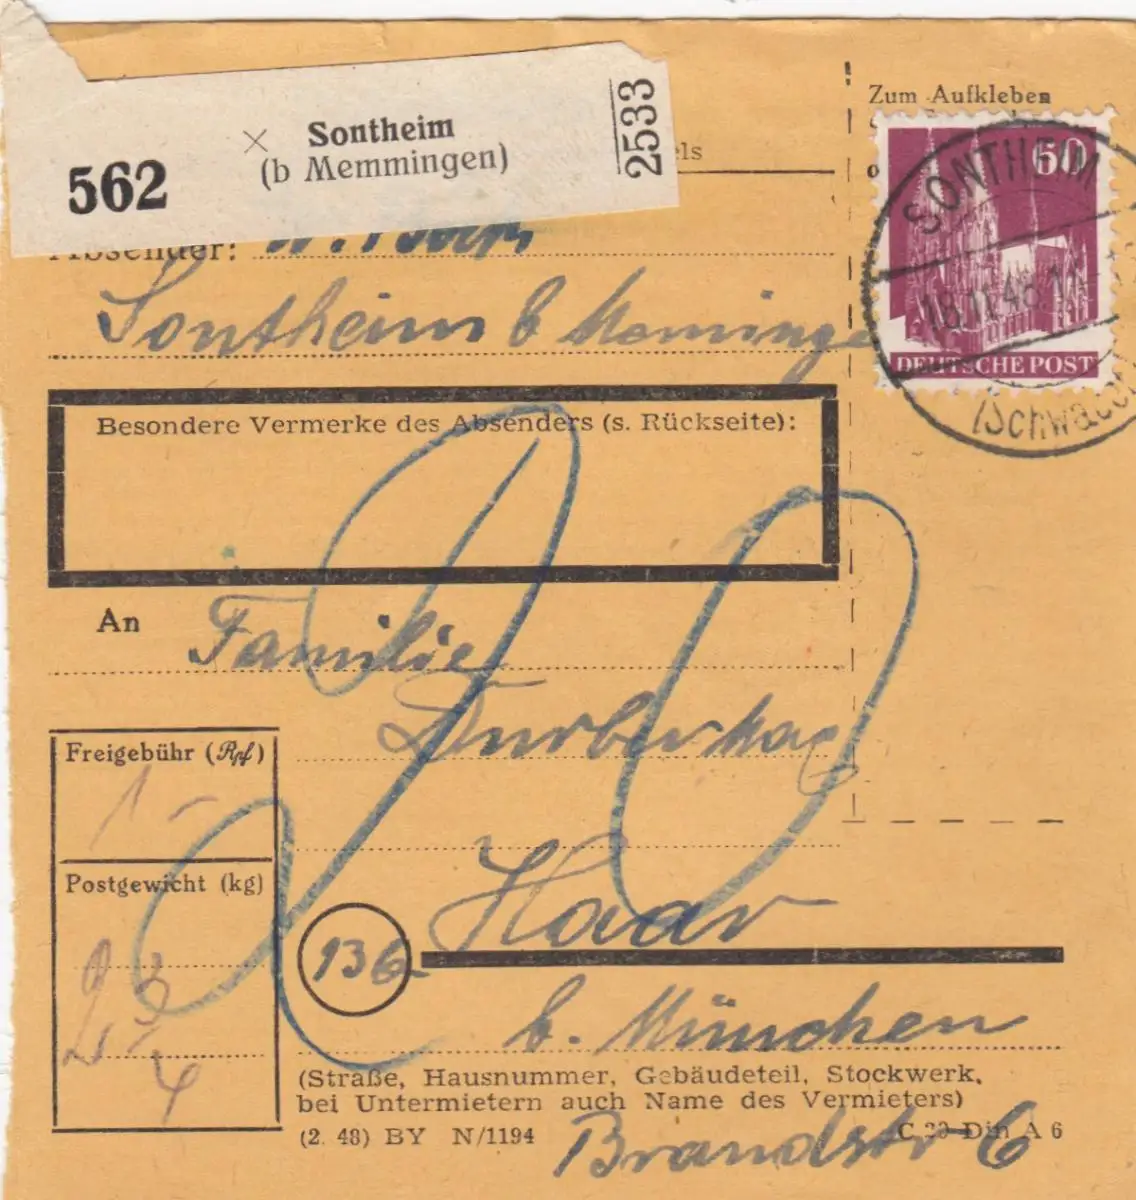 Zum Aufkleben
Sontheim
(b Memmingen)
562
2533
els
60
SONTHEIM
18.11.48.11
DEUTSCHE POST
(Schwaben
Absender:
Sontheim b Memminge
Besondere Vermerke des Absenders (s. Rückseite):
20
An
Familie
Haar
136
b. München
Freigebühr (Rpf)
1 -
Postgewicht (kg)
2 3/4
(Straße, Hausnummer, Gebäudeteil, Stockwerk,
bei Untermietern auch Name des Vermieters)
(2. 48) BY N/1194
C 20 Din A 6
Brandstr 6